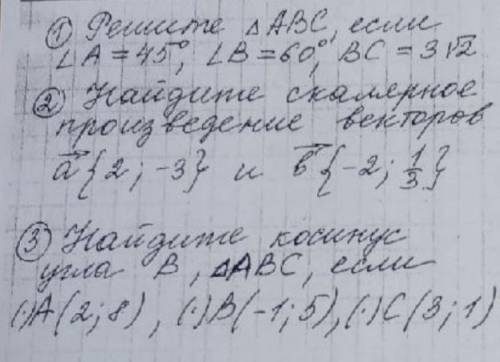 ① Решите △ABC, если
∠A = 45°, ∠B = 60°, BC = 3√2
② Найдите скалярное
произведение векторов
a⃗ {2; -3} и b⃗ {-2; 1/3}
③ Найдите косинус
угла B, △ABC, если
(·)A(2;8), (·)B(-1;5), (·)C(3;1)